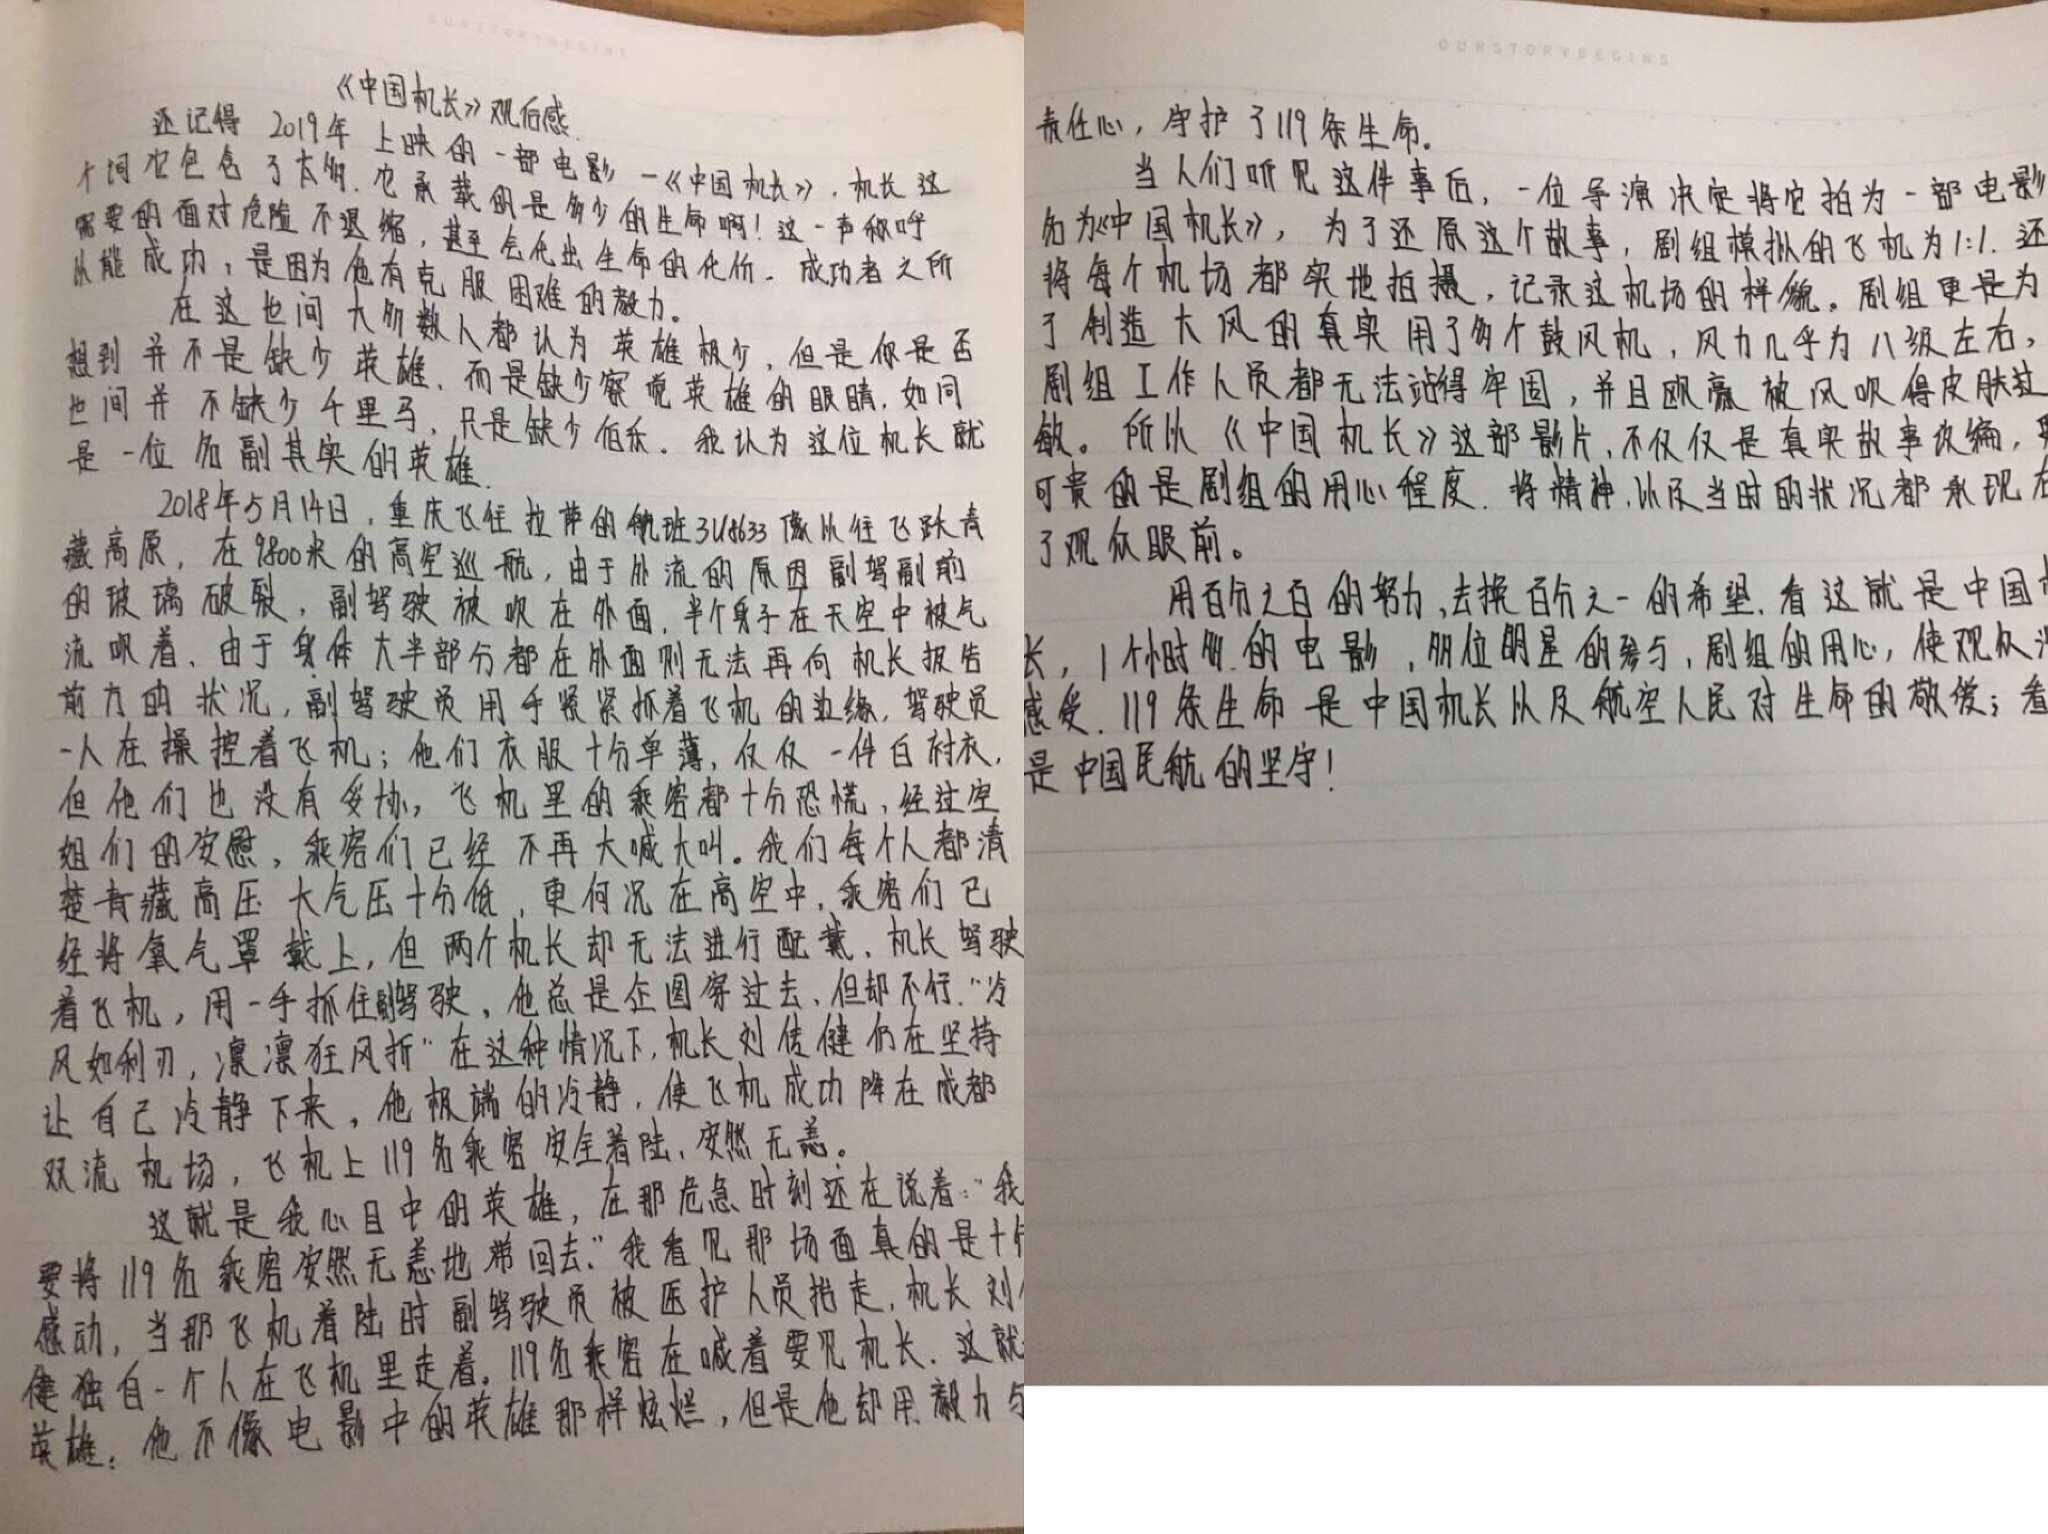 OURSTORYBEGINS
《中国机长》观后感
还记得2019年上映的一部电影—《中国机长》，机长这
个词它包含了太多，它承载的是多少的生命啊！这一声称呼
需要的面对危险不退缩，甚至会化出生命的化价。成功者之所
以能成功，是因为他有克服困难的毅力。
在这世间大多数人都认为英雄极少，但是你是否
想到并不是缺少英雄，而是缺少察觉英雄的眼睛，如同
世间并不缺少千里马，只是缺少伯乐。我认为这位机长就
是一位名副其实的英雄。
2018年5月14日，重庆飞往拉萨的航班3U8633像以往飞跃青
藏高原，在9800米的高空巡航，由于外流的原因副驾副前
的玻璃破裂，副驾驶被吹在外面，半个身子在天空中被气
流吹着，由于身体大半部分都在外面则无法再向机长报告
前方的状况，副驾驶员用手紧紧抓着飞机的边缘，驾驶员
一人在操控着飞机；他们衣服十分单薄，仅仅一件白衬衣，
但他们也没有妥协，飞机里的乘客都十分恐慌，经过空
姐们的安慰，乘客们已经不再大喊大叫。我们每个人都清
楚青藏高压大气压十分低，更何况在高空中，乘客们已
经将氧气罩戴上，但两个机长却无法进行配戴，机长驾驶
着飞机，用一手抓住副驾驶，他总是企图穿过去，但却不行．“冷
风如利刃，凛凛狂风折”在这种情况下，机长刘传健仍在坚持
让自己冷静下来，他极端的冷静，使飞机成功降在成都
双流机场，飞机上119名乘客安全着陆，安然无恙。
这就是我心目中的英雄，在那危急时刻还在说着：“我
要将119名乘客安然无恙地带回去．”我看见那场面真的是十分
感动，当那飞机着陆时副驾驶员被医护人员抬走，机长刘
健独自一个人在飞机里走着。119名乘客在喊着要见机长．这就
英雄；他不像电影中的英雄那样炫烂，但是他却用毅力与
OURSTORYBEGINS
责任心，守护了119条生命。
当人们听见这件事后，一位导演决定将它拍为一部电影
名为《中国机长》，为了还原这个故事，剧组模拟的飞机为1:1．还
将每个机场都实地拍摄，记录这机场的样貌。剧组更是为
了制造大风的真实用了多个鼓风机，风力几乎为八级左右，
剧组工作人员都无法站得牢固，并且欧豪被风吹得皮肤过
敏。所以《中国机长》这部影片，不仅仅是真实故事改编，更
可贵的是剧组的用心程度．将精神，以及当时的状况都承现在
了观众眼前。
用百分之百的努力，去换百分之一的希望．看这就是中国机
长，1个小时多的电影，朋位明星的参与，剧组的用心，使观众
感受．119条生命是中国机长以及航空人民对生命的敬爱；看
是中国民航的坚守！